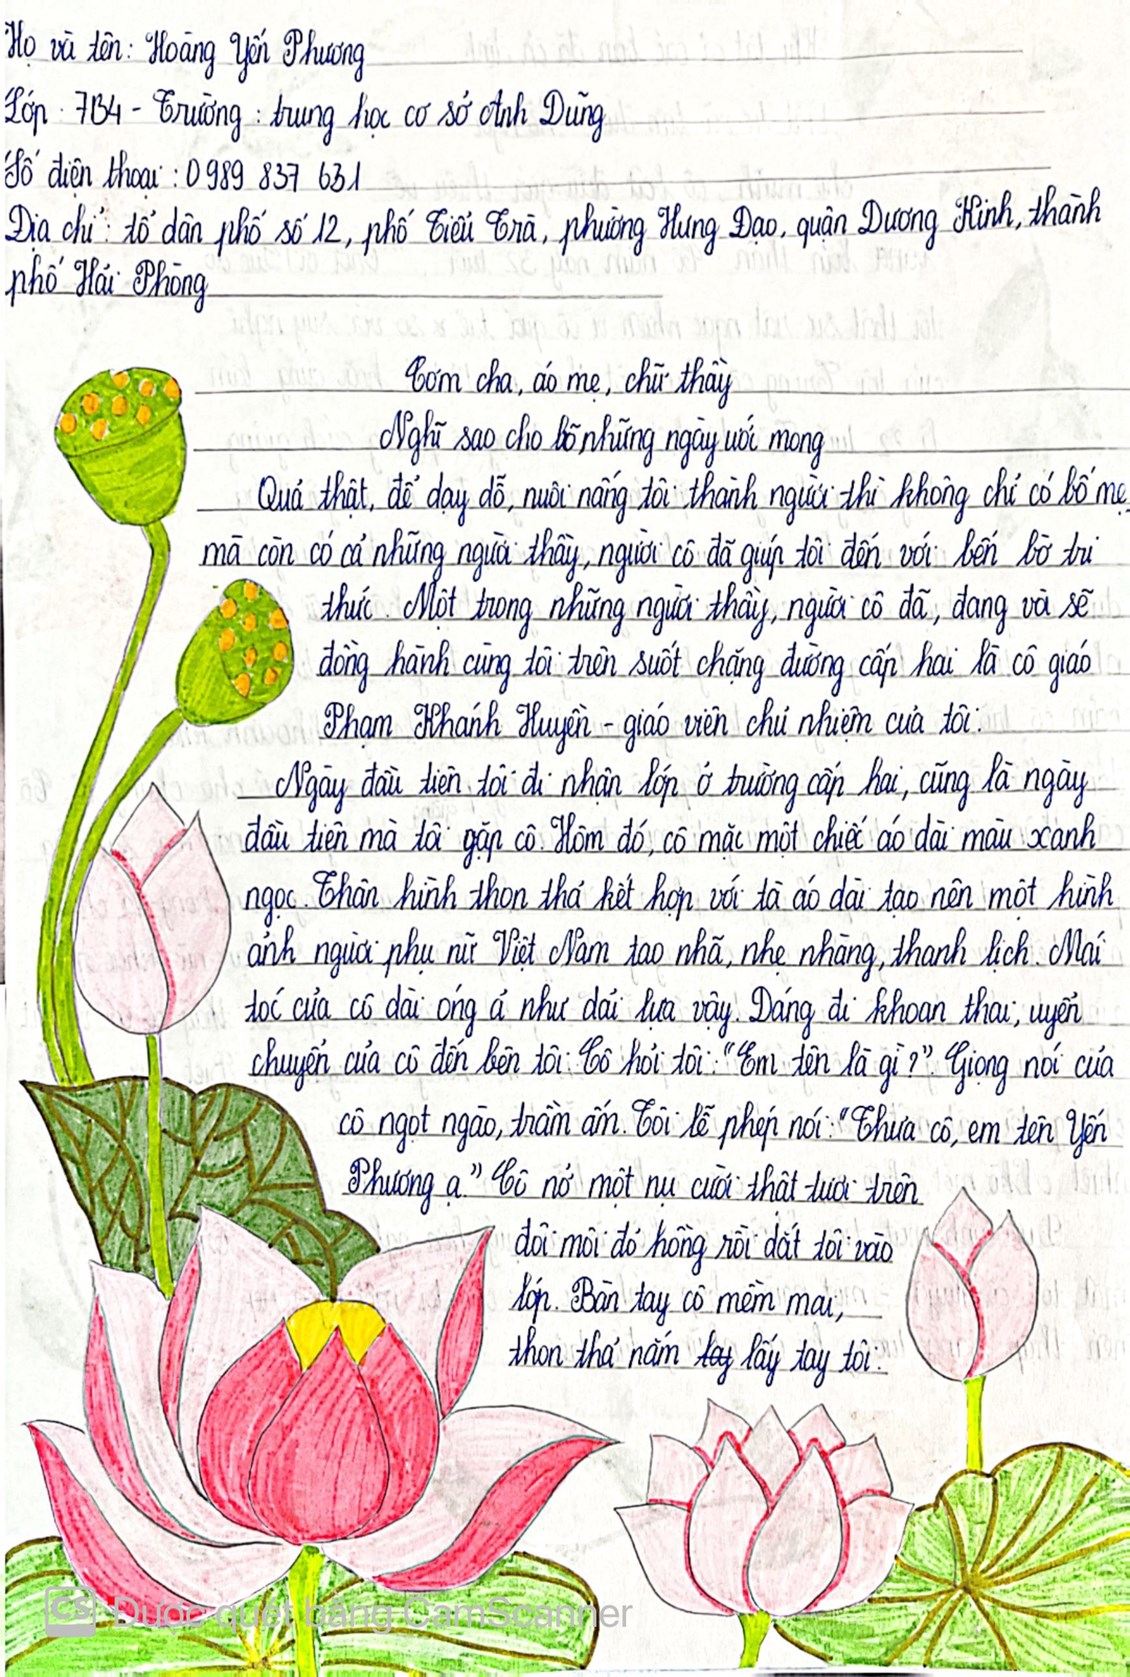 Họ và tên: Hoàng Yến Phương
Lớp: 7B4 - Trường: trung học cơ sở Anh Dũng
Số điện thoại: 0989 837 631
Địa chỉ: tổ dân phố số 12, phố Tiểu Trà, phường Hưng Đạo, quận Dương Kinh, thành
phố Hải Phòng
Cơm cha, áo mẹ, chữ thầy
Nghĩ sao cho bõ những ngày ước mong
Quả thật, để dạy dỗ, nuôi nấng tôi thành người thì không chỉ có bố mẹ
mà còn có cả những người thầy, người cô đã giúp tôi đến với bến bờ tri
thức. Một trong những người thầy, người cô đã, đang và sẽ
đồng hành cùng tôi trên suốt chặng đường cấp hai là cô giáo
Phạm Khánh Huyền - giáo viên chủ nhiệm của tôi.
Ngày đầu tiên tôi đi nhận lớp ở trường cấp hai, cũng là ngày
đầu tiên mà tôi gặp cô. Hôm đó, cô mặc một chiếc áo dài màu xanh
ngọc. Thân hình thon thả kết hợp với tà áo dài tạo nên một hình
ảnh người phụ nữ Việt Nam tao nhã, nhẹ nhàng, thanh lịch. Mái
tóc của cô dài óng ả như dải lụa vậy. Dáng đi khoan thai, uyển
chuyển của cô đến bên tôi. Cô hỏi tôi: "Em tên là gì?". Giọng nói của
cô ngọt ngào, trầm ấm. Tôi lễ phép nói: "Thưa cô, em tên Yến
Phương ạ." Cô nở một nụ cười thật tươi trên
đôi môi đỏ hồng rồi dắt tôi vào
lớp. Bàn tay cô mềm mại,
thon thả nắm tay lấy tay tôi.
CS Được quét bằng CamScanner